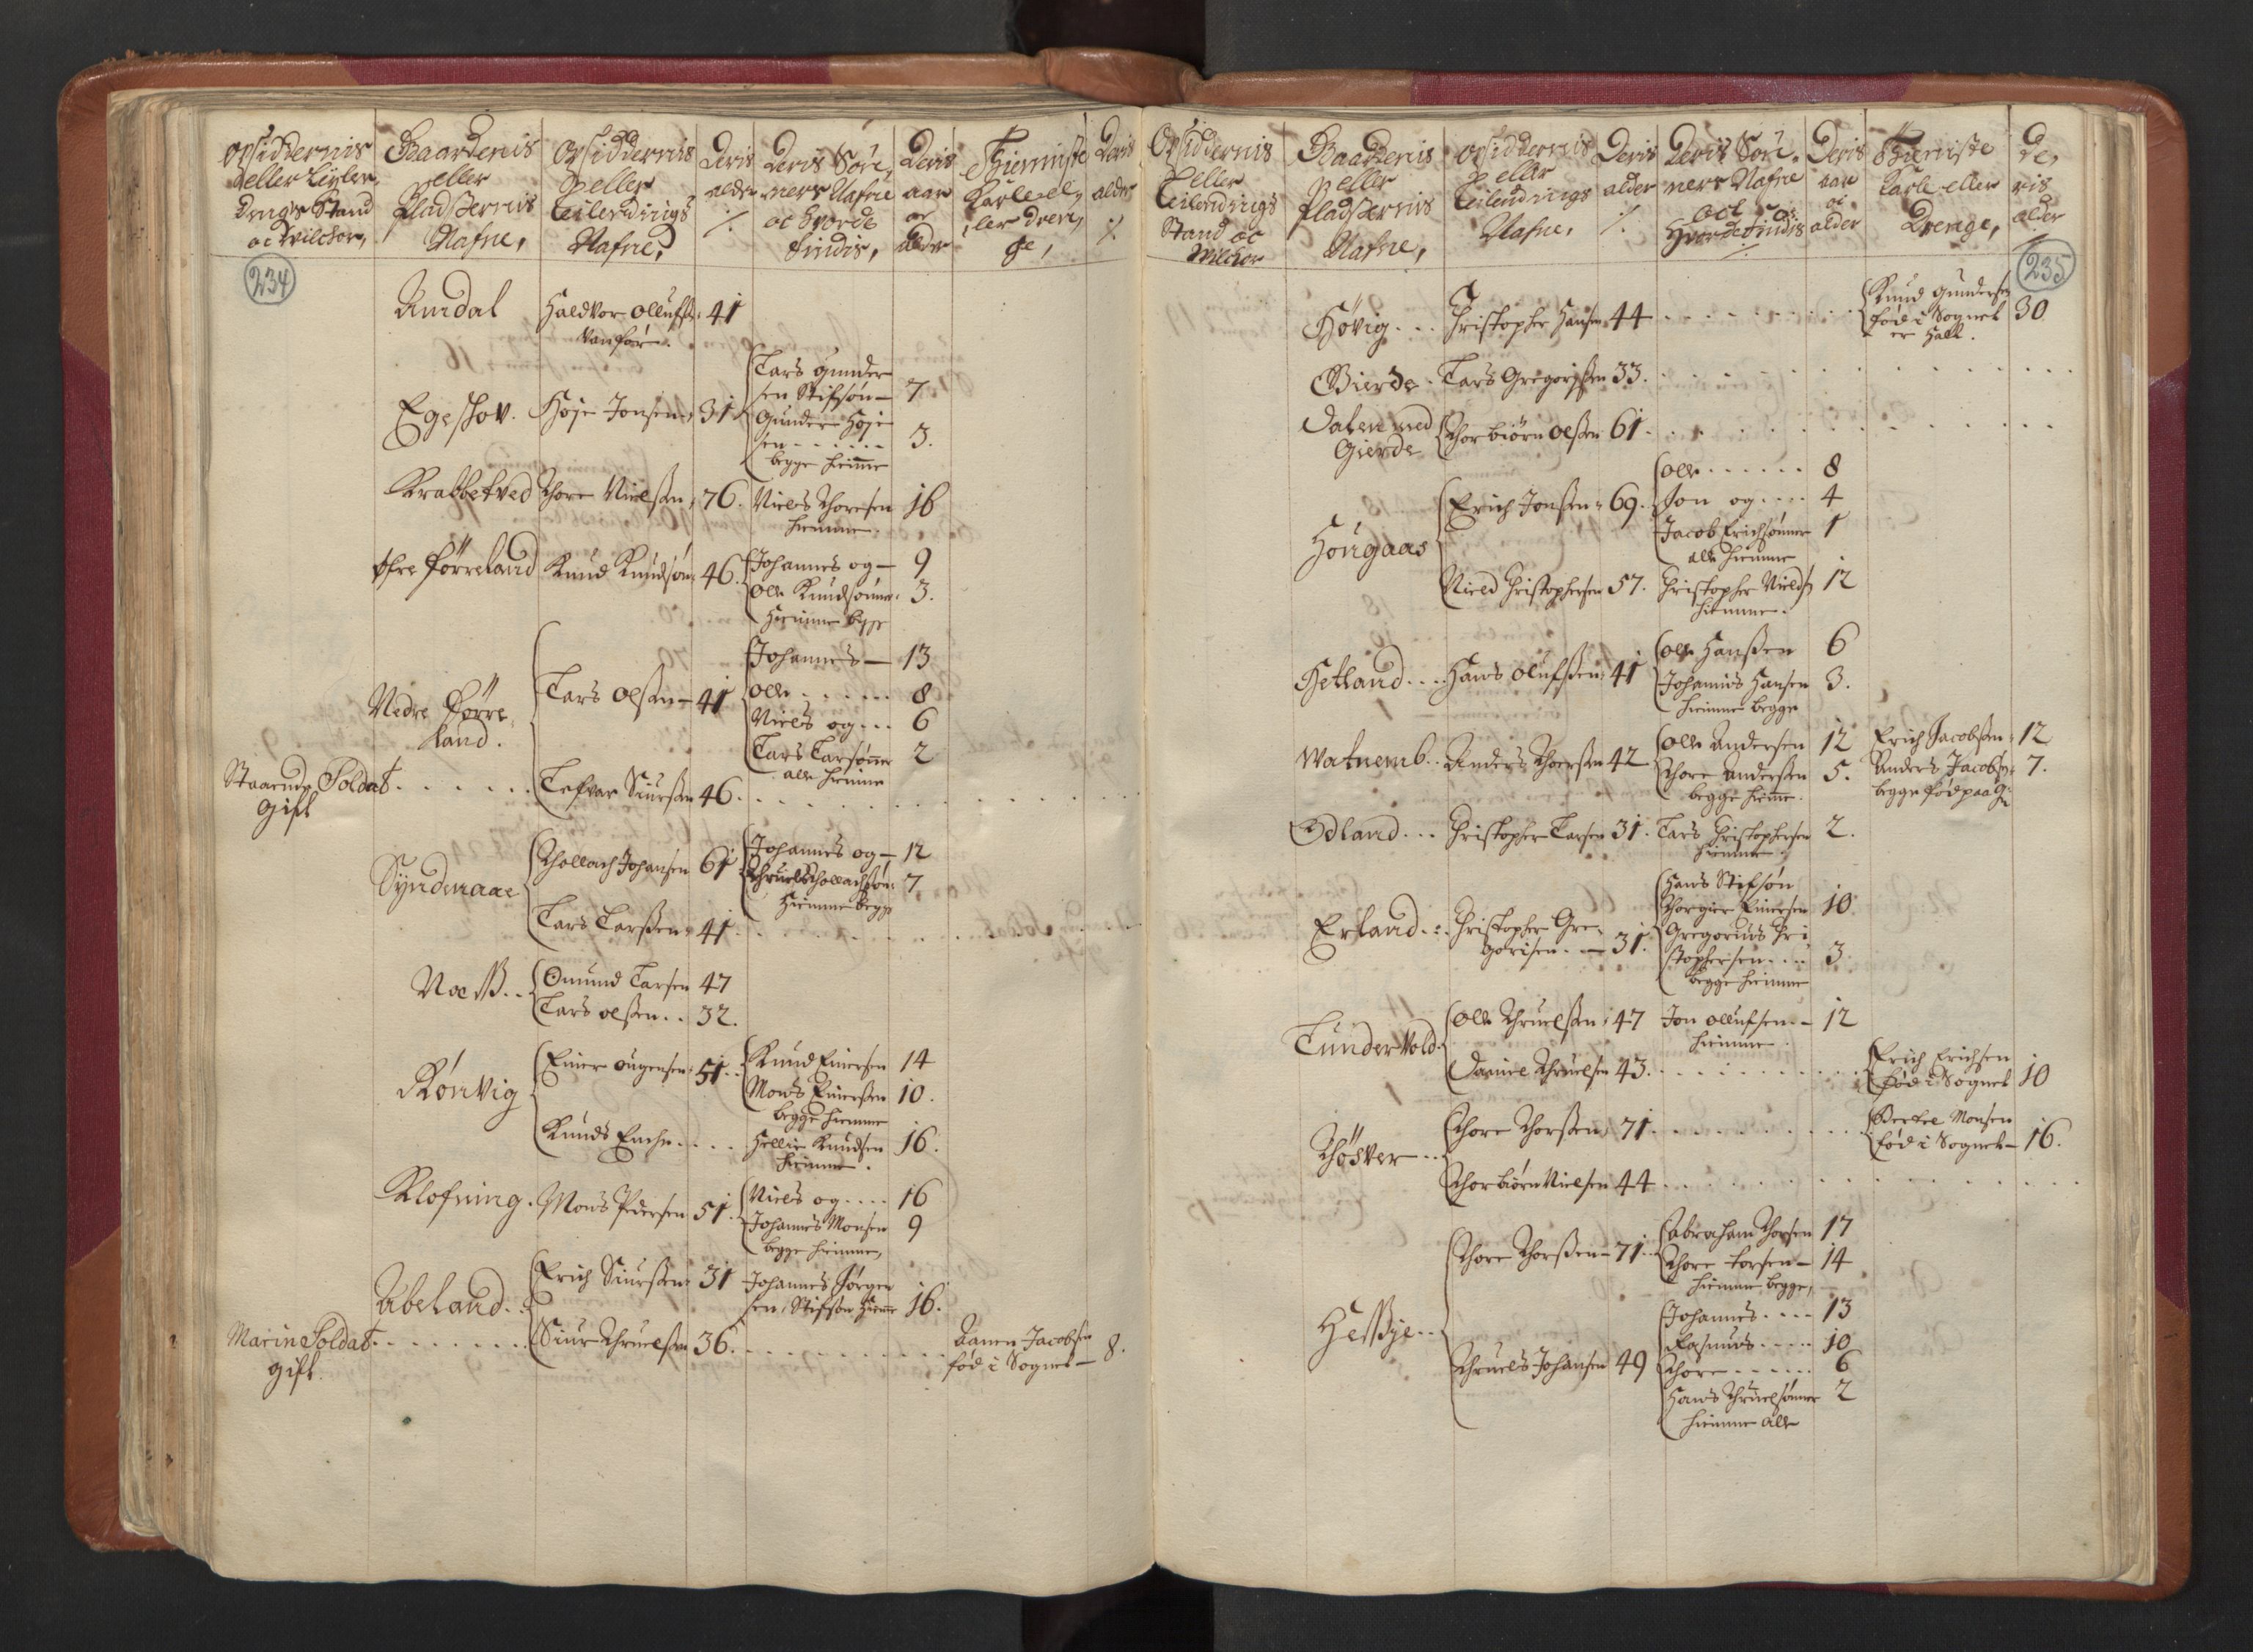 Opsiddernis
eller Leylen-
dings Stand
oc Vilchor,
Gaardenis
eller
Pladsernis
Nafne,
Opsiddernis
eller
Leilendings
Nafne,
Deris
alder
Deris Søn-
ners Nafne
oc hvor de
findis,
Deris
aar
oc
Alder
Thieniste
Karle el-
ler dren-
ge,
Deris
alder
234
Aardal Haldvor Olluffs: 41
Vanfør.
Lars Gunder
sen Stifsøn 7
Egeschov. Høje Jonsen 31
Gunder Høje
sen 3.
begge hieme
Krabbetved Thore Nielsen 76. Niels Thoresen 16
hiemme
Øfre Førreland Knud Knudsøn 46. Johannes og 9
Olle Knudsønner 3.
Hiemme begge
Nedre Førre
land.
Lars Olsen 41
Johannes 13
Olle 8
Niels og 6
Lars Larsønner 2
alle hiemme
Staaende Soldat
gift
Tefvar Siursen 46.
Syndenaae
Thollach Johansen 61
Johannes og 12
Thruels Thollachsøn 7
Hiemme begge
Lars Larsen 41.
Noeß
Omund Larsen 47
Lars Olsen 32.
Rønvig
Einer Ougensen 51.
Knud Einersen 14
Mons Einersen 10.
begge hiemme
Knuds Enche Hellie Knudsen 16.
hiemme.
Klofning. Mons Pedersen 51.
Niels og 16
Johannes Monsen 9
begge hiemme,
Abeland.
Erich Siursen 31 Johannes Jørgen
sen, Stifsøn hieme 16.
Marin Soldat
gift.
Siur Thruelsen 36.
Aanen Jacobsen
fød i Sognet 8.
Opsiddernis
eller
Leilendings
Stand oc
Vilchor
Gaardenis
eller
Pladsernis
Nafne,
Opsiddernis
eller
Leilendings
Nafne,
Deris
alder
Deris Søn-
ners Nafne
och
Hvor de findis
Deris
aar
oc
alder
Thieniste
Karle eller
Drenge,
De-
ris
alder
235
Høvig Christopher Hansen 44
Knud Gundersen
fød i Sognet 30
er Halt.
Gierde Lars Gregorissen 33.
Dalen med
Gierde
Thorbiørn Olsen 61.
Hougaas
Erich Jonsen 69.
Olle 8
Jon og 4
Jacob Erichsønner 1
alle hiemme
Nield Christophersen 57. Christopher Nields 12
hiemme.
Hetland Hans Olufsen 41
Olle Hansen 6
Johannes Hansen 3.
hiemme begge
Watnemb. Anders Thorsen 42
Olle Andersen 12
Thore Andersen 5.
begge hieme.
Erich Jacobsen 12
Anders Jacobsen 7.
begge fød paa
Odland Christopher Larsen 31. Lars Christophersen 2.
hiemme
Erland Christopher Gre-
gorisen 31.
Hans Stifsøn
Thorgier Einersen 10
Gregorius Chri
stophersen 3
begge hiemme
Tunder Vold
Olle Thruelsen 47 Jon Ollufsen 12
hiemme
Daniel Thruelsen 43.
Erich Erichsen
fød i Sognet 10
Thøsver
Thore Thorsen 71.
Bertel Monsen
fød i Sognet 16.
Thorbiørn Nielsen 44
Heßøye
Thore Thorsen 71.
Abraham Thorsen 17
Thore Torsen 14
hiemme begge,
Thruels Johansen 49
Johannes 13
Rasmus 10
Thore 6
Hans Thruelsønner 2
hiemme alle